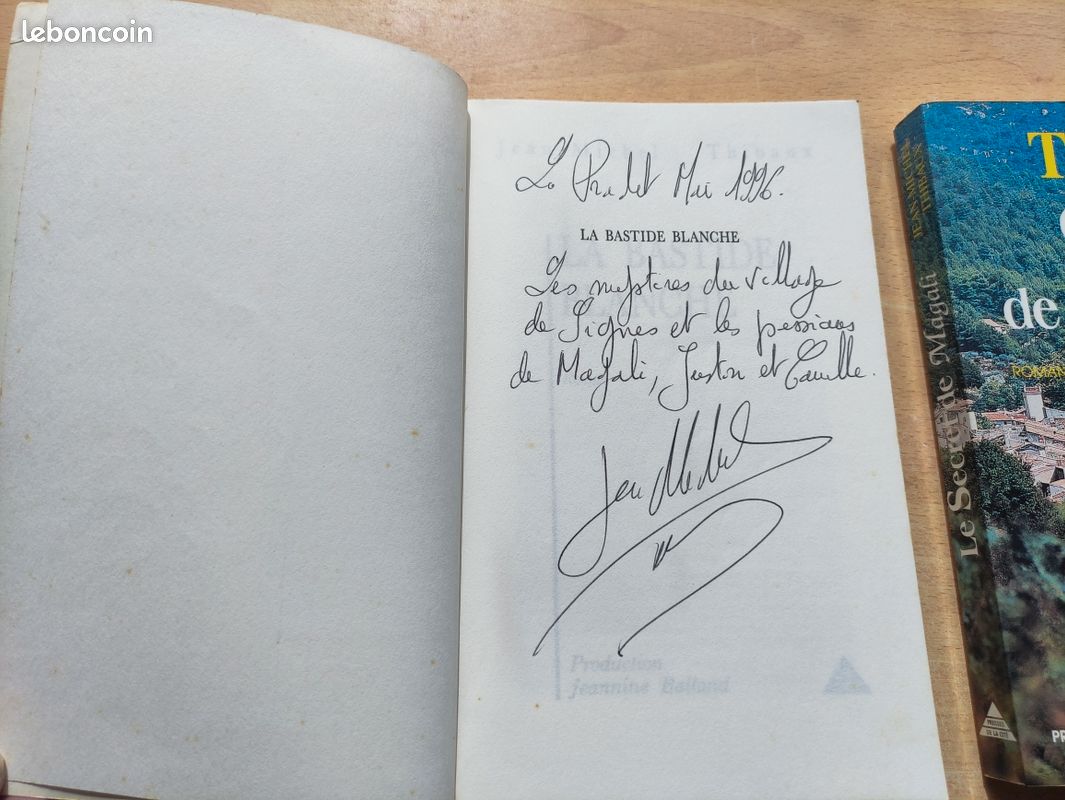 leboncoin
Le Pradet Mai 1996.
LA BASTIDE BLANCHE
Les mystères du village
de Signes et les passions
de Magali, Justin et Camille.
Jean Michel
Production
Jeannine Balland
JEAN-MICHEL
THIBAUX
Le Secret de Magali
PRESSES
DE LA CITÉ
T
de
ROMAN
PR